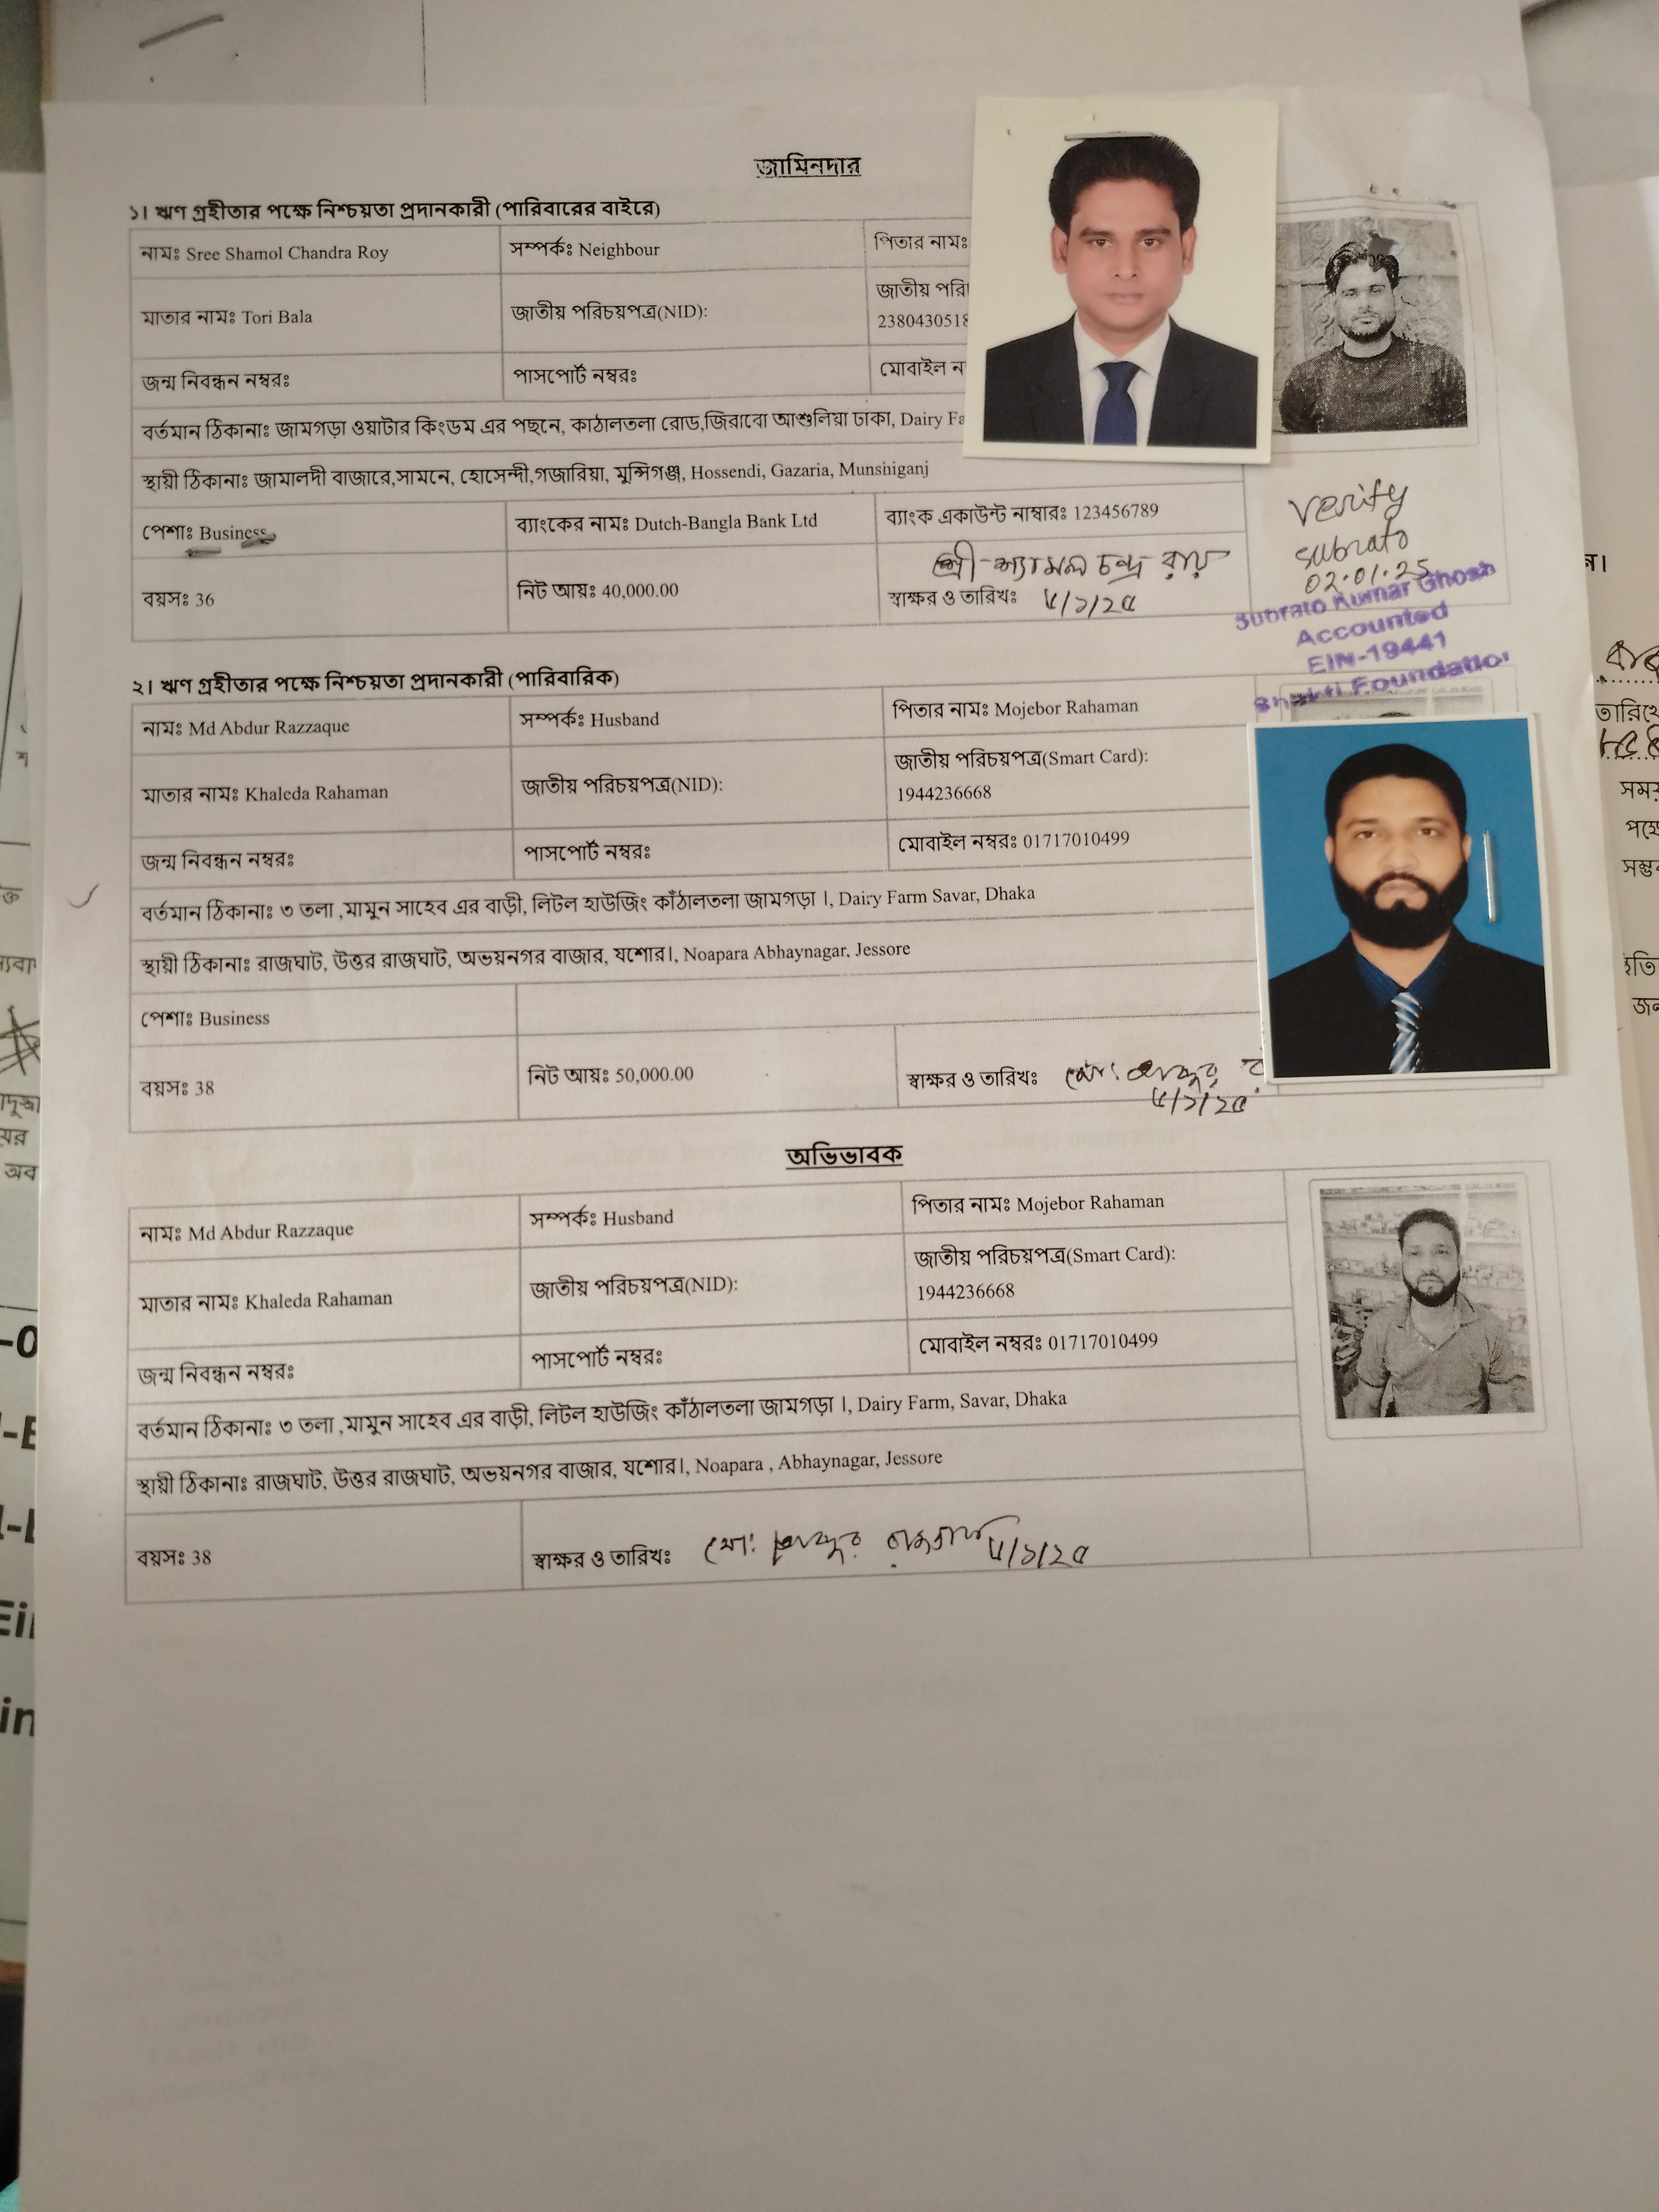 জামিনদার
১। ঋণ গ্রহীতার পক্ষে নিশ্চয়তা প্রদানকারী (পারিবারের বাইরে)
নামঃ Sree Shamol Chandra Roy
সম্পর্কঃ Neighbour
পিতার নামঃ
মাতার নামঃ Tori Bala
জাতীয় পরিচয়পত্র(NID):
জাতীয় পরি
2380430518
জন্ম নিবন্ধন নম্বরঃ
পাসপোর্ট নম্বরঃ
মোবাইল ন
বর্তমান ঠিকানাঃ জামগড়া ওয়াটার কিংডম এর পছনে, কাঠালতলা রোড,জিরাবো আশুলিয়া ঢাকা, Dairy Fa
স্থায়ী ঠিকানাঃ জামালদী বাজারে,সামনে, হোসেন্দী,গজারিয়া, মুন্সিগঞ্জ, Hossendi, Gazaria, Munshiganj
পেশাঃ Business
ব্যাংকের নামঃ Dutch-Bangla Bank Ltd
ব্যাংক একাউন্ট নাম্বারঃ 123456789
বয়সঃ 36
নিট আয়ঃ 40,000.00
শ্রী-শ্যামল চন্দ্র রায়
স্বাক্ষর ও তারিখঃ ৮/১/২৫
Verify
subrato
02.01.25
Subrato Kumar Ghosh
Accounted
EIN-19441
Shakti Foundation
২। ঋণ গ্রহীতার পক্ষে নিশ্চয়তা প্রদানকারী (পারিবারিক)
নামঃ Md Abdur Razzaque
সম্পর্কঃ Husband
পিতার নামঃ Mojebor Rahaman
মাতার নামঃ Khaleda Rahaman
জাতীয় পরিচয়পত্র(NID):
জাতীয় পরিচয়পত্র(Smart Card):
1944236668
জন্ম নিবন্ধন নম্বরঃ
পাসপোর্ট নম্বরঃ
মোবাইল নম্বরঃ 01717010499
বর্তমান ঠিকানাঃ ৩ তলা ,মামুন সাহেব এর বাড়ী, লিটল হাউজিং কাঁঠালতলা জামগড়া ।, Dairy Farm Savar, Dhaka
স্থায়ী ঠিকানাঃ রাজঘাট, উত্তর রাজঘাট, অভয়নগর বাজার, যশোর।, Noapara Abhaynagar, Jessore
পেশাঃ Business
বয়সঃ 38
নিট আয়ঃ 50,000.00
স্বাক্ষর ও তারিখঃ মোঃ আব্দুর র
৮/১/২৫
অভিভাবক
নামঃ Md Abdur Razzaque
সম্পর্কঃ Husband
পিতার নামঃ Mojebor Rahaman
মাতার নামঃ Khaleda Rahaman
জাতীয় পরিচয়পত্র(NID):
জাতীয় পরিচয়পত্র(Smart Card):
1944236668
জন্ম নিবন্ধন নম্বরঃ
পাসপোর্ট নম্বরঃ
মোবাইল নম্বরঃ 01717010499
বর্তমান ঠিকানাঃ ৩ তলা ,মামুন সাহেব এর বাড়ী, লিটল হাউজিং কাঁঠালতলা জামগড়া ।, Dairy Farm, Savar, Dhaka
স্থায়ী ঠিকানাঃ রাজঘাট, উত্তর রাজঘাট, অভয়নগর বাজার, যশোর।, Noapara , Abhaynagar, Jessore
বয়সঃ 38
স্বাক্ষর ও তারিখঃ মোঃ আব্দুর রাজ্জাক ৮/১/২৫